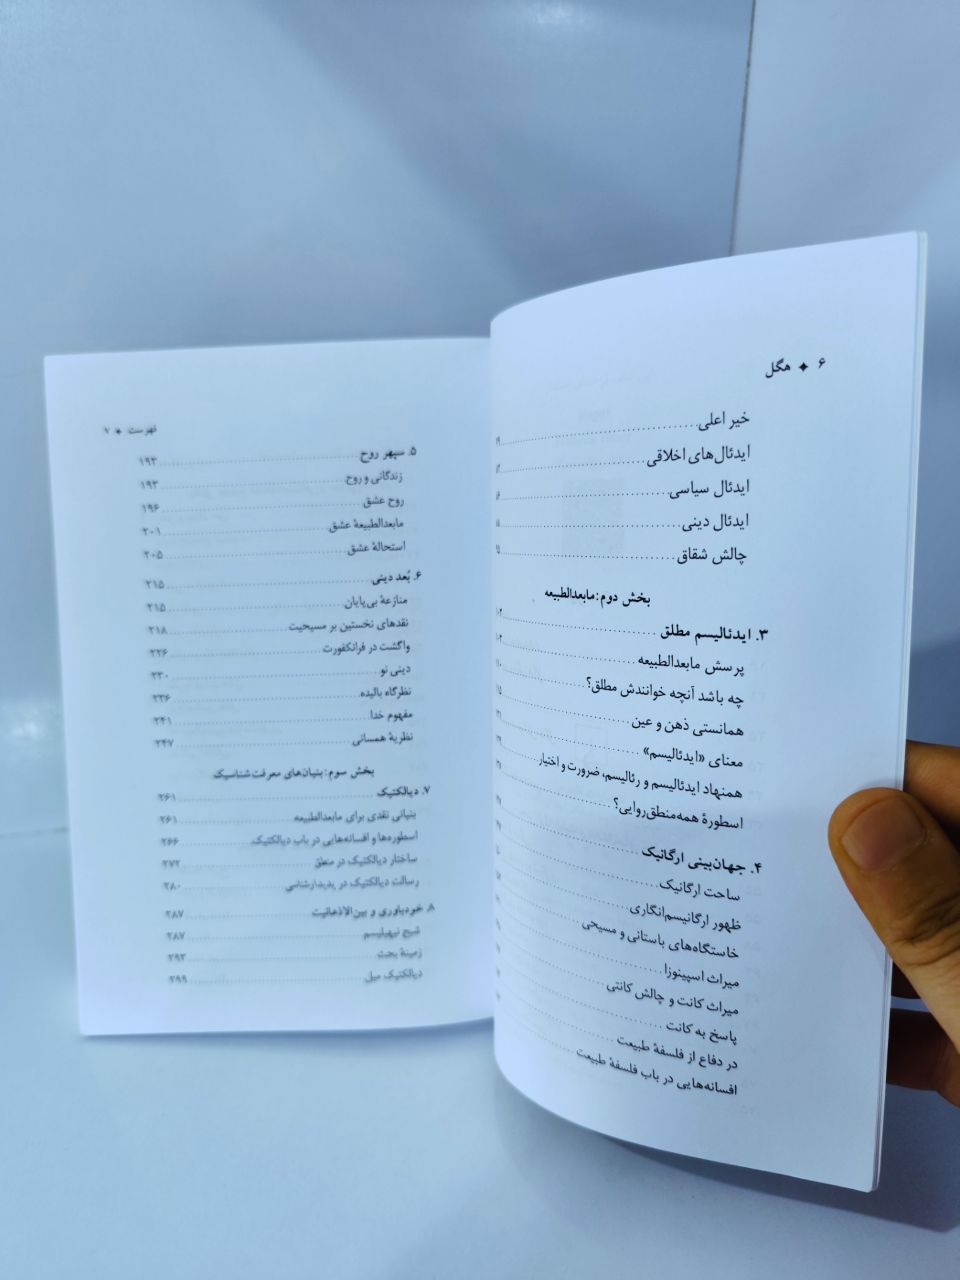 ۶ ✦ هگل
خیر اعلی
ایدئال‌های اخلاقی
ایدئال سیاسی
ایدئال دینی
چالش شقاق
بخش دوم: مابعدالطبیعه
۳. ایدئالیسم مطلق
پرسش مابعدالطبیعه
چه باشد آنچه خوانندش مطلق؟
همانستی ذهن و عین
معنای «ایدئالیسم»
همنهاد ایدئالیسم و رئالیسم، ضرورت و اختیار
اسطورهٔ همه‌منطق‌روایی؟
۴. جهان‌بینی ارگانیک
ساحت ارگانیک
ظهور ارگانیسم‌انگاری
خاستگاه‌های باستانی و مسیحی
میراث اسپینوزا
میراث کانت و چالش کانتی
پاسخ به کانت
در دفاع از فلسفهٔ طبیعت
افسانه‌هایی در باب فلسفهٔ طبیعت
فهرست ✦ ۷
۵. سپهر روح ۱۹۳
زندگانی و روح ۱۹۳
روح عشق ۱۹۶
مابعدالطبیعهٔ عشق ۲۰۱
استحالهٔ عشق ۲۰۵
۶. بُعد دینی ۲۱۵
منازعهٔ بی‌پایان ۲۱۵
نقدهای نخستین بر مسیحیت ۲۱۸
واگشت در فرانکفورت ۲۲۶
دینی نو ۲۳۰
نظرگاه بالیده ۲۳۶
مفهوم خدا ۲۴۱
نظریهٔ همسانی ۲۴۷
بخش سوم: بنیان‌های معرفت‌شناسیک
۷. دیالکتیک ۲۶۱
بنیانی نقدی برای مابعدالطبیعه ۲۶۱
اسطوره‌ها و افسانه‌هایی در باب دیالکتیک ۲۶۶
ساختار دیالکتیک در منطق ۲۷۲
رسالت دیالکتیک در پدیدارشناسی ۲۸۰
۸. خودباوری و بین‌الاذهانیت ۲۸۷
شبح نیهیلیسم ۲۸۷
زمینهٔ بحث ۲۹۳
دیالکتیک میل ۲۹۹